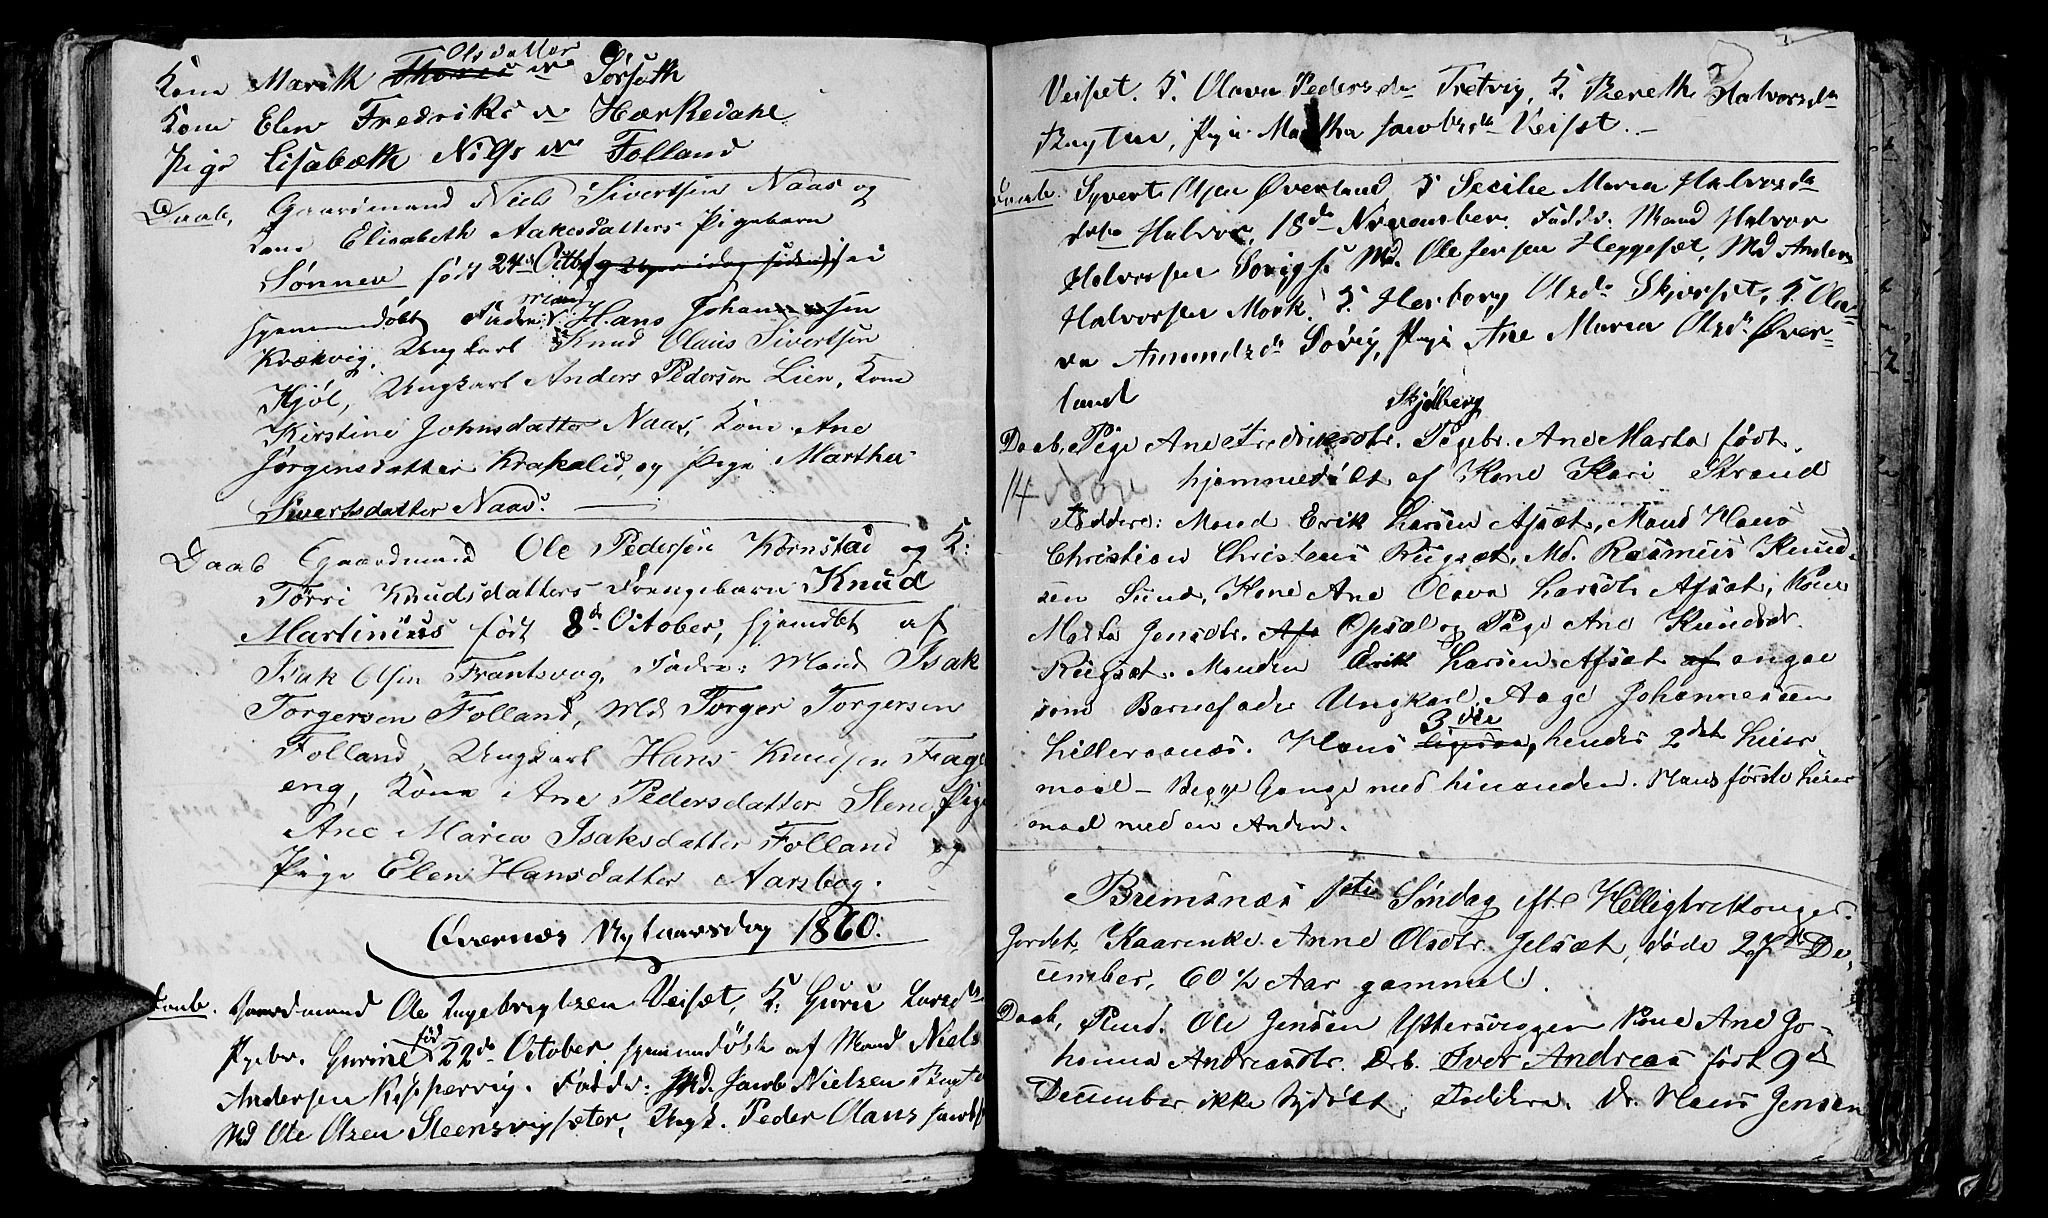 Olsdatter
Kone Marith Thores dtr Sørseth
Kone Elen Fredriks d Harkedahl
Pige Lisabeth Nils dtr Folland
Daab, Gaardmand Niels Sivertsen Naas og
Kone Elisabeth Aakesdatters Pigebarn
Sønnev født 24de Octbr ei
hjemmedøbt Fadr: Mand Hans Johannesen
Krækvig, Ungkarl Knud Olaus Sivertsen
Hjøl, Ungkarl Anders Pedersen Lien, Kone
Kirstine Johnsdatter Naas, Kone Ane
Jørgensdatter Krakelid, og Pige Marthe
Sivertsdatter Naas.
Daab Gaardmand Ole Pedersen Kornstad og K:
Torri Knudsdatters Drengebarn Knud
Martinius født 8de October, hjemdbt af
Isak Olsen Frantsvag, Fadre: Mand Isak
Torgersen Folland, Md Torger Torgersen
Folland, Ungkarl Hans Knudsen Frag
eng, Kone Ane Pedersdatter Stene, Pige
Ane Maria Isaksdatter Folland og
Pige Elen Hansdatter Aarsbog.
Øvernæs Nytaarsdag 1860.
Daab. Gaardmand Ole Ingebrigtsen Veiset, K. Guru Larsdtr
Pigebr. Gurine fød 22de October hjemmedøbt af Mand Niels
Andersen Kispervig. Faddr: Md. Jacob Nielsen
Md Ole Olsen Steensvigsæter, Ungk. Peder Olaus Jacobs
Veiset. K. Olava Pedersdr Tretvig, K. Bereth Halvorsdr
Pige Martha Jacobsdr Veiset.
Daab. Syvert Olsen Øverland, K Secilie Maria Halvorsdr
Halvor, 18de November. Faddr. Mand Halvor
Halvorsen Md. Ole Jensen Heggeset, Md Anders
Halvorsen Mork, K. Herborg Olsdr Skjorset, K. Ola
va Amundsdr Sovig, Pige Ane Maria Olsdr Øver
land
Skjølberg
Daab, Pige Ane Fredriksdtr. Pigebr. Ane Marta født
14 hjemmedøbt af Kone Kari Strand
Faddere: Mand Erik Larsen Afsæt, Mand Hans
Christian Christens Rugsæt, Md. Rasmus Knud
sen Sund, Kone Ane Olava Larsdtr Afsæt, Kone
Marta Jensdtr. Afs Opsal og Pige Ane Knudsdtr.
Rugsæt. Manden Erik Larsen Afsæt af angav
som Barnefader Ungkarl Aage Johannessen
Lilleraanæs. Hans 3die ligesaa, hendes 2det Leier
maal – Begge Gange med hinanden. Hans første Leier
maal med en Anden.
Bremsnæs 1ste Søndag eft Helligtrekonger.
Jordet, Kaarenke Anne Olsdtr. Jelsæt, døde 27de De,
cember, 60 1/2 Aar gammel.
Daab, Ole Jensen Yttersveggen Kone Ane Jo-
hanna Andreasdtr. Drb. Iver Andreas født 9de
December ikke hjdøbt. Faddere. Hans Jensen